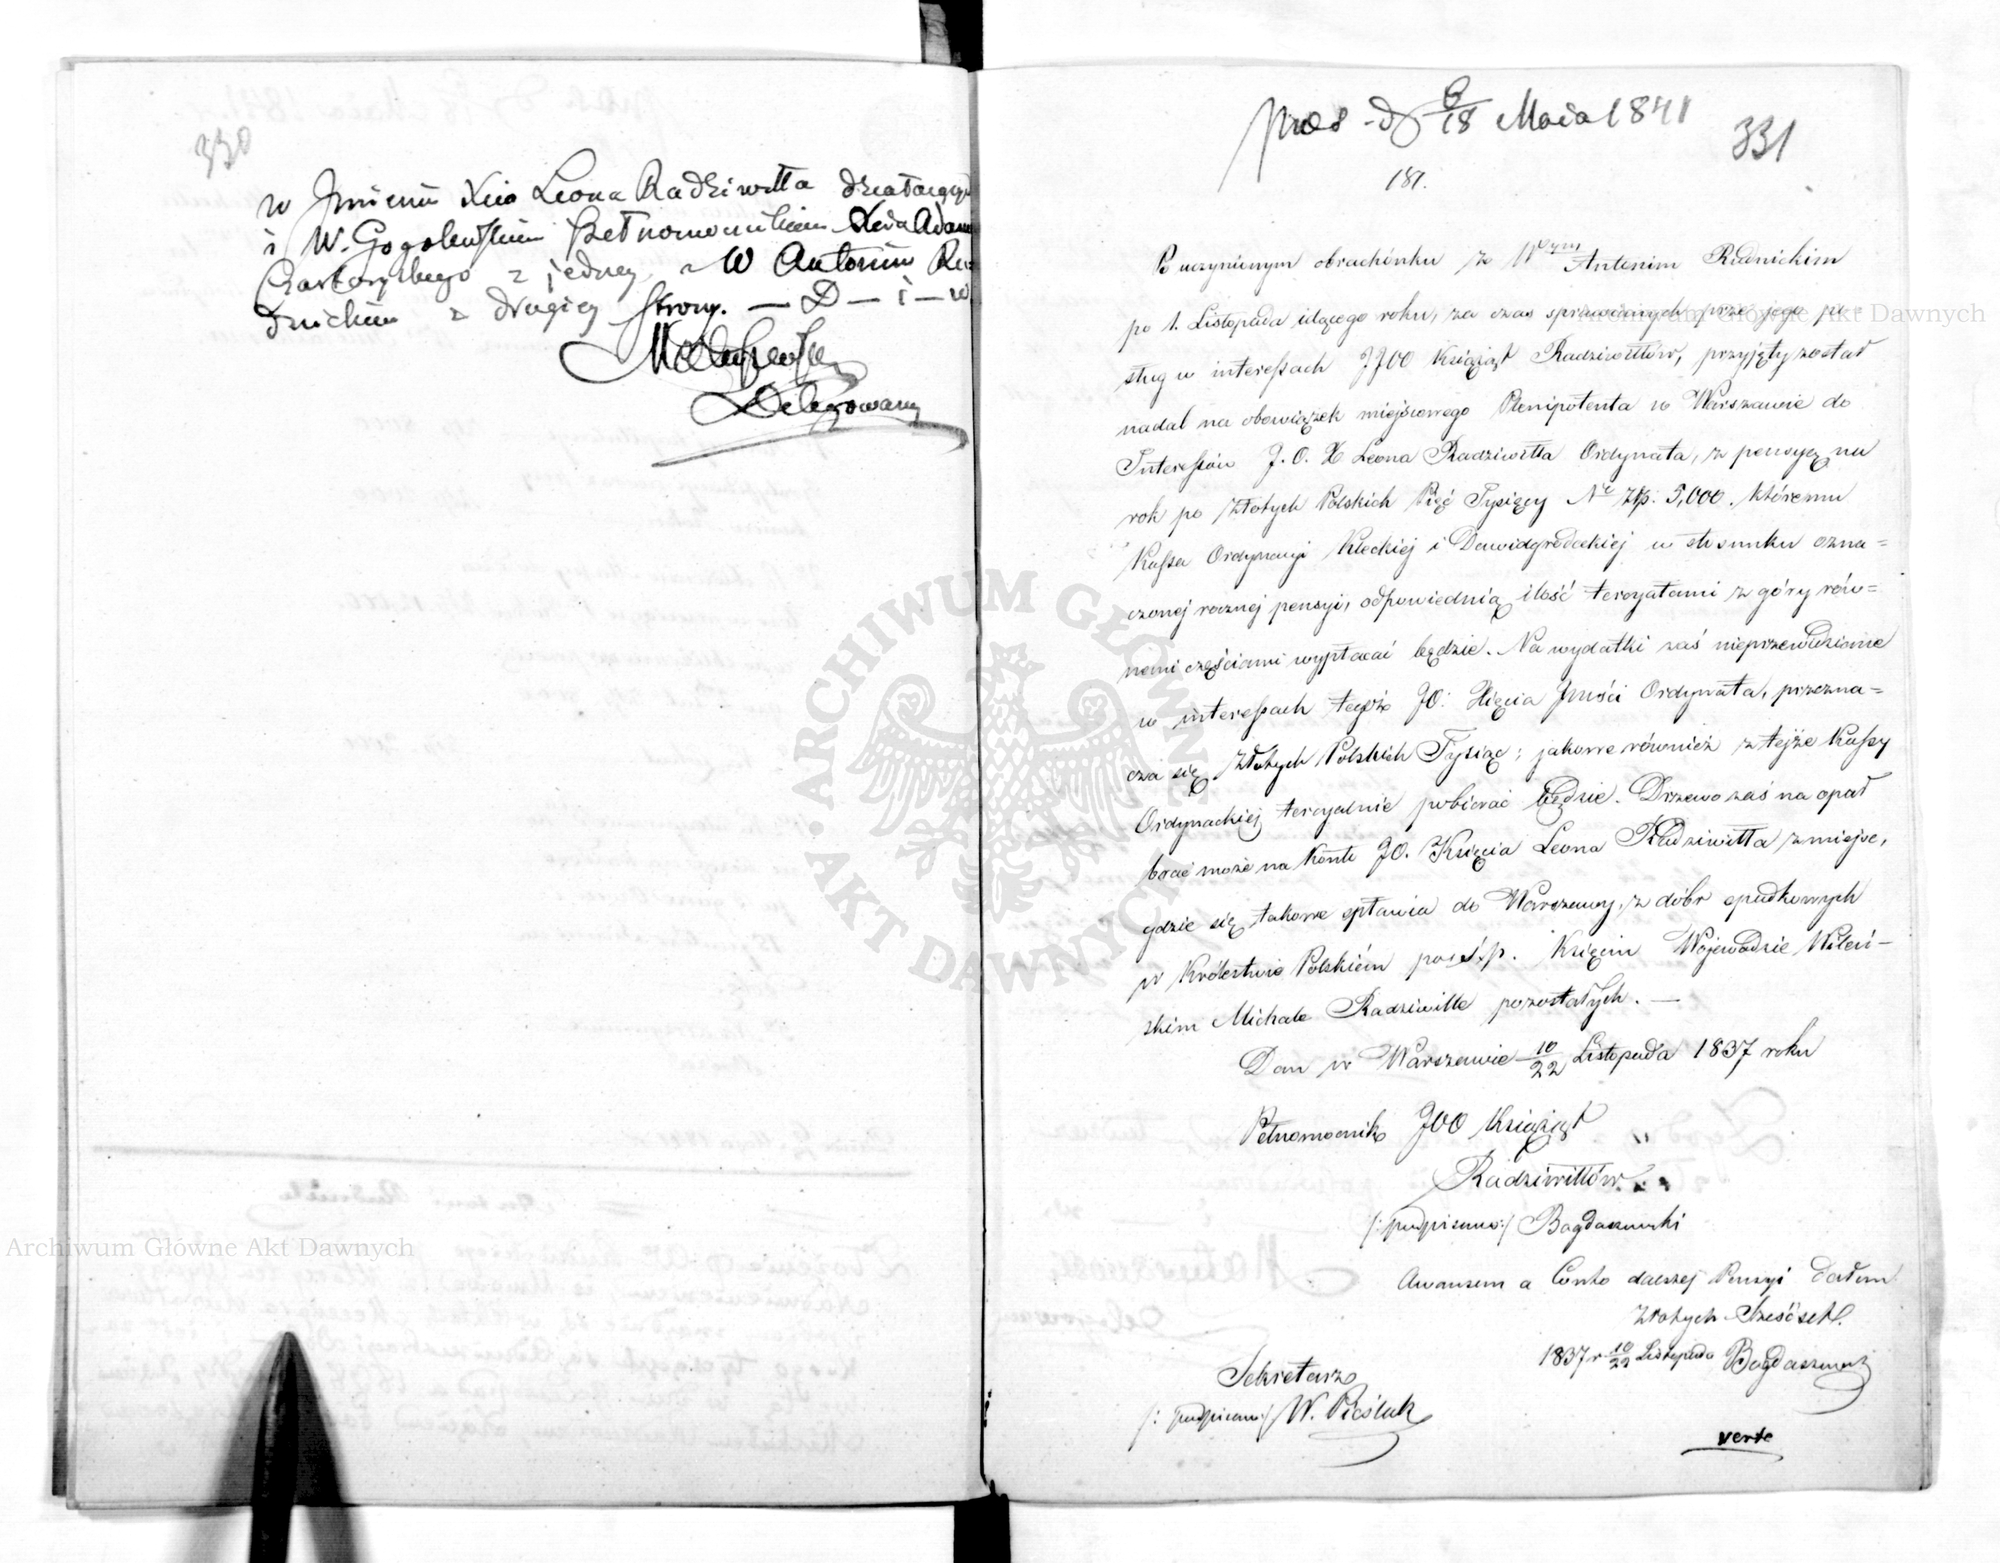 330
w Jmieniu Xcia Leona Radziwiłła działającym
i W. Gogolewskim Pełnomocnikiem Xcia Adama
Czartoryskiego z jedney, a W Antonim Ru
dnickim z drugiey strony. — D — i — w.
Delegowany
præs. d 6/18 Maia 1841
331
181.
Po uczynionym obrachunku z Wym Antonim Rudnickim
po 1. Listopada idącego roku, za czas sprawianych przez jego po=
sług w interessach JJOO Książąt Radziwiłłów, przyjęty został
nadal na obowiązek miejscowego Plenipotenta w Warszawie do
Interessów J. O. X Leona Radziwiłła Ordynata, z pensyą na
rok po Złotych Polskich Pięć Tysięcy No Złp: 5,000. któremu
Kassa Ordynacyi Kleckiej i Dawidgrodeckiej w stosunku ozna=
czonej rocznej pensyi, odpowiednią ilość tercyałami z góry rów=
nemi częściami wypłacać będzie. Na wydatki zaś nieprzewidziane
w interessach tegoż JO: Xięcia Jmości Ordynata, przezna=
cza się Złotych Polskich Tysiąc; jakowe również z tejże Kassy
Ordynackiej tercyalnie pobierać będzie. Drzewo zaś na opał
brać może na Konto JO. Księcia Leona Radziwiłła z miejsc,
gdzie się takowe spławia do Warszawy, z dóbr spadkowych
w Królestwie Polskiém po ś.p. Księciu Wojewodzie Wileń-
skim Michale Radziwille pozostałych. —
Dan w Warszawie 10/22 Listopada 1837 roku
Pełnomocnik JOO Książąt
Radziwiłłów
/: podpisano :/ Bogdaszewski
Awansem a Conto dalszej Pensyi dałem
Złotych Sześćset.
1837 r 10/22 Listopada Bogdaszewski
Sekretarz
/: podpisano :/ W. Pieślak
verte
ARCHIWUM GŁÓWNE AKT DAWNYCH
Archiwum Główne Akt Dawnych
Archiwum Główne Akt Dawnych